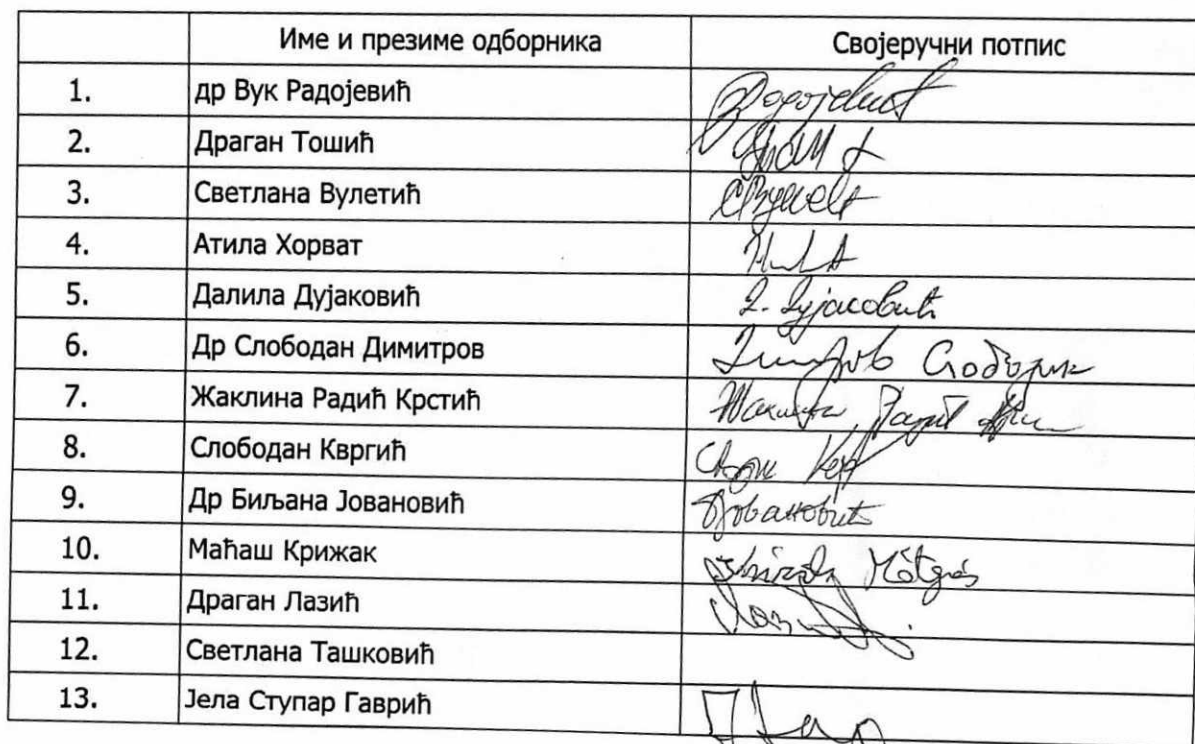 Име и презиме одборника Својеручни потпис
1. др Вук Радојевић Радојевић
2. Драган Тошић
3. Светлана Вулетић
4. Атила Хорват
5. Далила Дујаковић Д. Дујаковић
6. Др Слободан Димитров Димитров Слободан
7. Жаклина Радић Крстић Жаклина Радић
8. Слободан Квргић
9. Др Биљана Јовановић БЈовановић
10. Маћаш Крижак Mátyás
11. Драган Лазић
12. Светлана Ташковић
13. Јела Ступар Гаврић